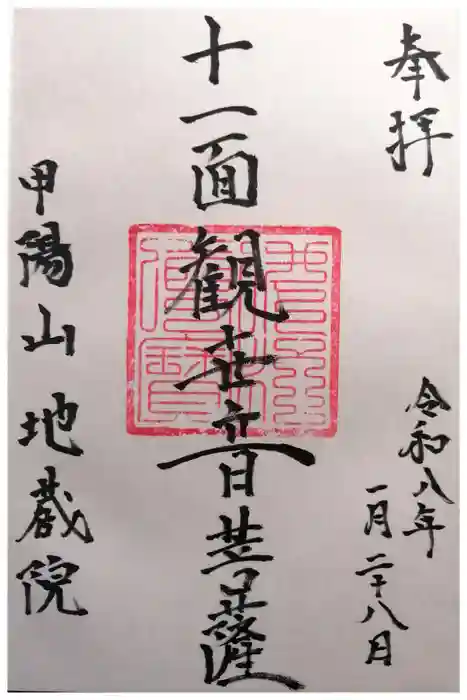 奉拝
令和八年
一月二十八日
十一面観世音菩薩
甲陽山 地蔵院